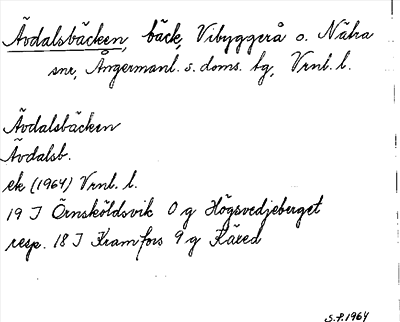 Ävdalsbäcken, bäck, Vibyggerå o. Nähra
snr, Ångermanl. s. doms. tg, Vrnl. l.
Ävdalsbäcken
Ävdalsb.
ek (1964) Vrnl. l.
19 I Örnsköldsvik 0 g Högsvedjeberget
resp. 18 I Kramfors 9 g Käred
S.P. 1964